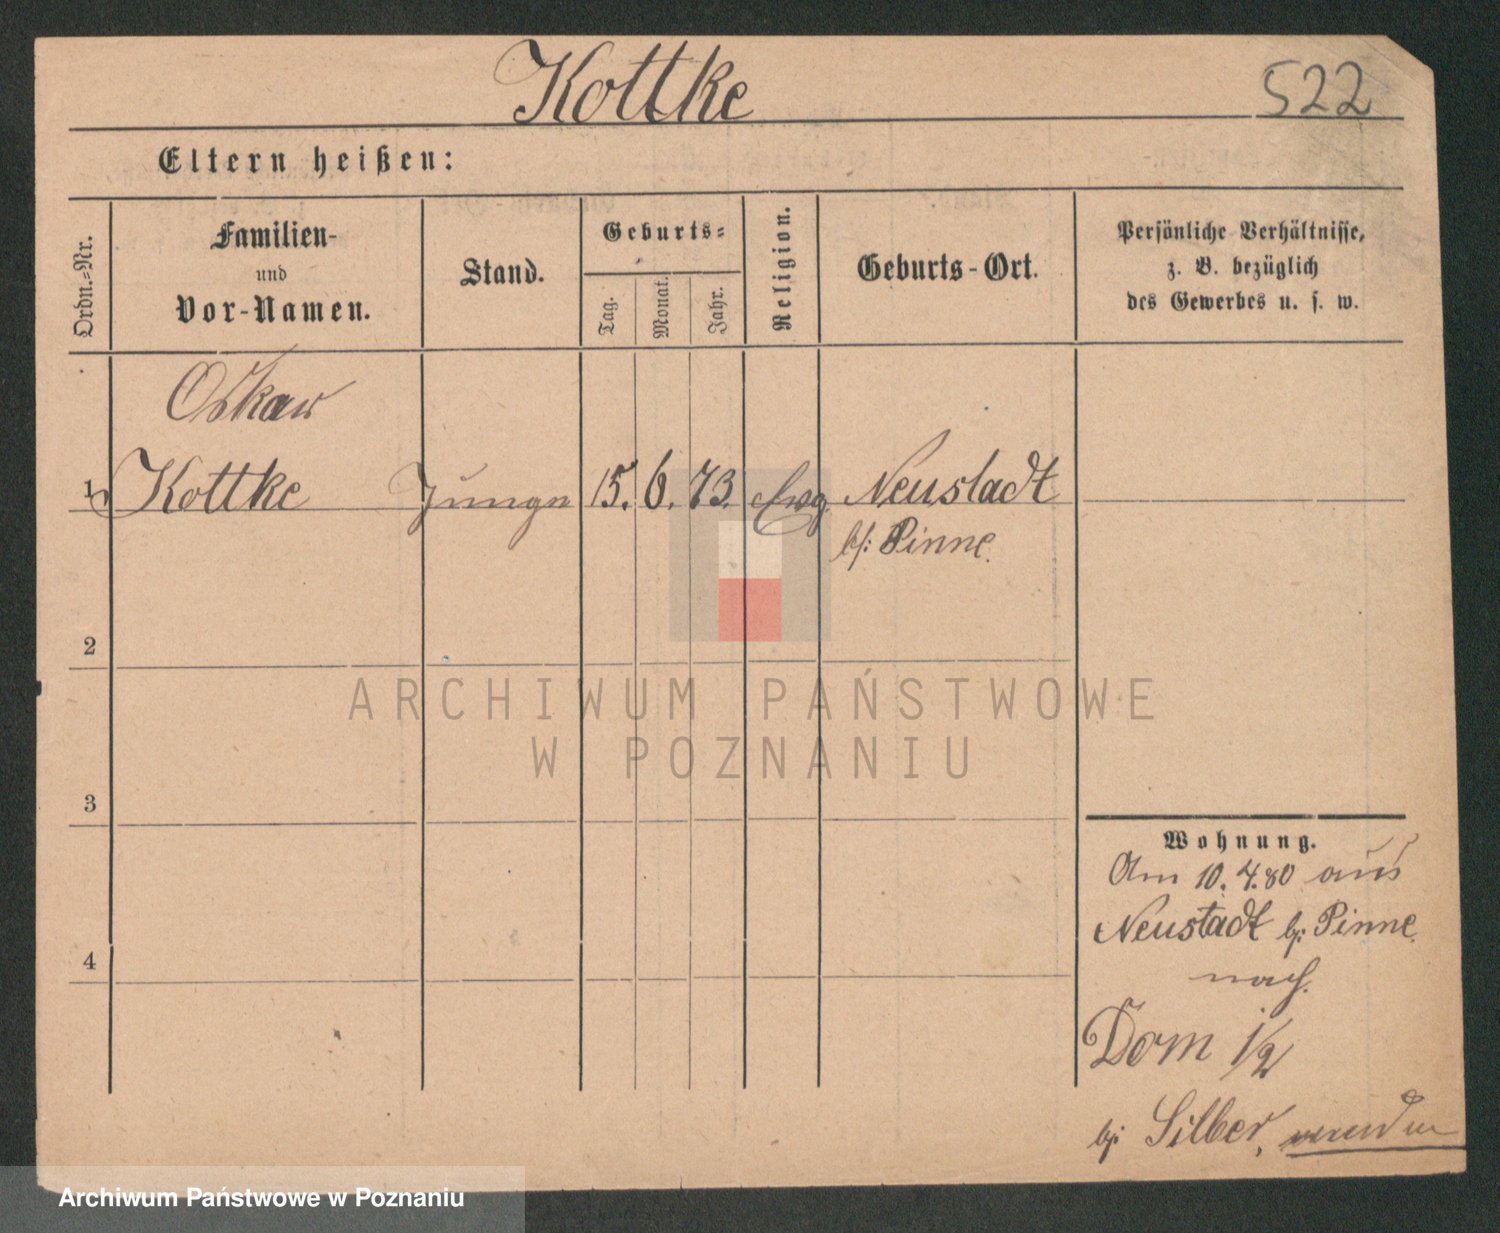 Kottke
522
Eltern heißen:
Ordn.-Nr.
Familien-
und
Vor-Namen.
Stand.
Geburts-
Tag.
Monat.
Jahr.
Religion.
Geburts-Ort.
Persönliche Verhältnisse,
z. B. bezüglich
des Gewerbes u. s. w.
Oskar
1 Kottke Junge 15. 6. 73. Evg. Neustadt
b/: Pinne.
2
3
4
Wohnung.
Am 10. 4. 80 aus
Neustadt b/: Pinne.
nach
Dom 1/2
b/: Silber,
ARCHIWUM PAŃSTWOWE
W POZNANIU
Archiwum Państwowe w Poznaniu